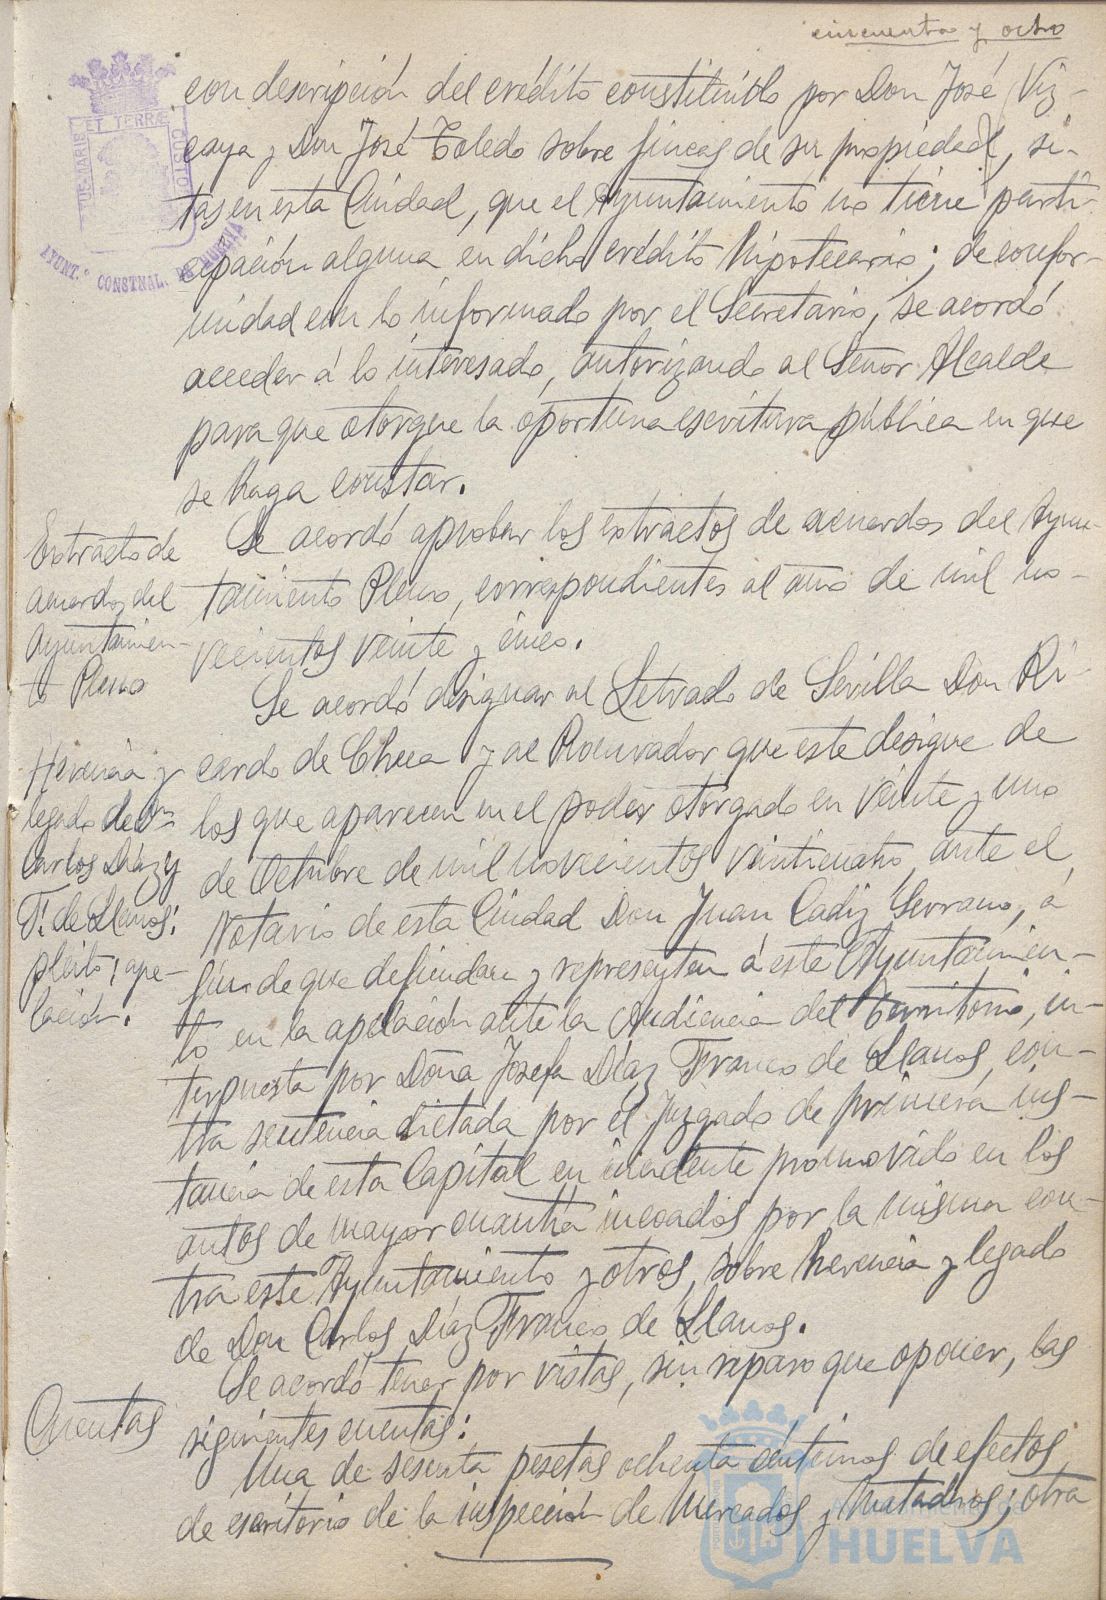 cincuenta y ocho
con descripción del crédito constituido por Don José Viz-
caya y Don José Toledo sobre fincas de su propiedad, si-
tas en esta Ciudad, que el Ayuntamiento no tiene parti-
cipación alguna en dicho crédito hipotecario; de confor-
midad con lo informado por el Secretario, se acordó
acceder á lo interesado, autorizando al Señor Alcalde
para que otorgue la oportuna escritura pública en que
se haga constar.
Extracto de
acuerdos del
Ayuntamien-
to Pleno
Se acordó aprobar los extractos de acuerdos del Ayun-
tamiento Pleno, correspondientes al año de mil no-
vecientos veinte y cinco.
Herencia y
legado de Dn
Carlos Díaz y
F. de Llanos:
pleito; ape-
lación.
Se acordó designar al Letrado de Sevilla Don Ri-
cardo de Checa y al Procurador que este designe de
los que aparecen en el poder otorgado en veinte y uno
de Octubre de mil novecientos veinticuatro, ante el
Notario de esta Ciudad Don Juan Cadiz Serrano, á
fin de que defiendan y representen á este Ayuntamien-
to en la apelación ante la Audiencia del Territorio, in-
terpuesta por Doña Josefa Díaz Franco de Llanos, con-
tra sentencia dictada por el Juzgado de primera ins-
tancia de esta Capital en incidente promovido en los
autos de mayor cuantía incoados por la misma con-
tra este Ayuntamiento y otros, sobre herencia y legado
de Don Carlos Díaz Franco de Llanos.
Cuentas
Se acordó tener por vistas, sin reparo que oponer, las
siguientes cuentas:
Una de sesenta pesetas ochenta céntimos de efectos
de escritorio de la inspección de Mercados y Mataderos; otra
ET TERRÆ
CUSTO
TUS MARIS
AYUNT.º CONSTNAL. DE HUELVA
HUELVA